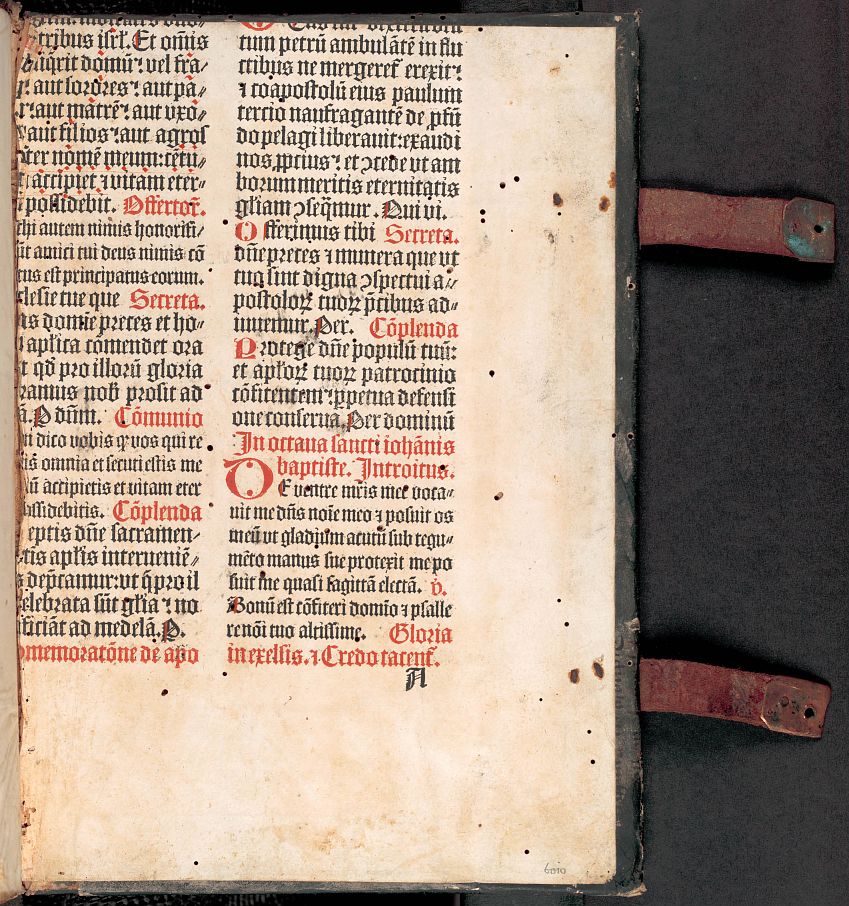 tribus isrł. Et om̄is
domū: vel fra⸗
aut sorores: aut pa⸗
aut matrē: aut vxo⸗
aut filios: aut agros
ter nomē meum: cētu⸗
accipiet ⁊ vitam eter⸗
possidebit. Offertor̄.
chi autem nimis honorifi⸗
sūt amici tui deus nimis cō
tus est principatus eorum.
clesie tue que Secreta.
domie preces et ho⸗
aplica cōmendet ora
t qd̄ pro illorū gloria
ramus nob̄ prosit ad
P dn̄m. Cōmunio
dico vobis ꝙ vos qui re
omnia et secuti estis me
accipietis et vitam eter
ossidebitis. Cōplenda
eptis dn̄e sacramen⸗
tis apl̄is interueniē⸗
dep̄camur: vt q̄ pro il
elebrata sūt gl̄ia ⁊ no
ficiāt ad medelā. P.
omemoratōne de apo
tum petrū ambulātē in flu
ctibus ne mergeret᷑ erexit:
⁊ coapostolū eius paulum
tercio naufragantē de ꝓfū
do pelagi liberauit: exaudi
nos ꝓpicius: et ꝯcede vt am
borum meritis eternitatis
gl̄iam ꝯseq̄mur. Qui vi.
Offerimus tibi Secreta.
dn̄e preces ⁊ munera que vt
tuo sint digna ꝯspectui a⸗
postoloꝝ tuoꝝ p̄cibus ad⸗
iuuemur. Per. Cōplenda
Protege dn̄e populū tuū:
et apl̄oꝝ tuoꝝ patrocinio
cōfitentem: ꝑpetua defensi
one conserua. Per dominū
In octaua sancti iohānis
baptiste. Introitus.
De ventre mr̄is mee voca⸗
uit me dn̄s noīe meo ⁊ posuit os
meū vt gladium acutū sub tegu⸗
mēto manus sue protexit me po
suit me quasi sagittā electā. v̄.
Bonū est cōfiteri domino ⁊ psalle
re nōi tuo altissime. Gloria
in excelsis. ⁊ Credo tacent᷑.
A
6010